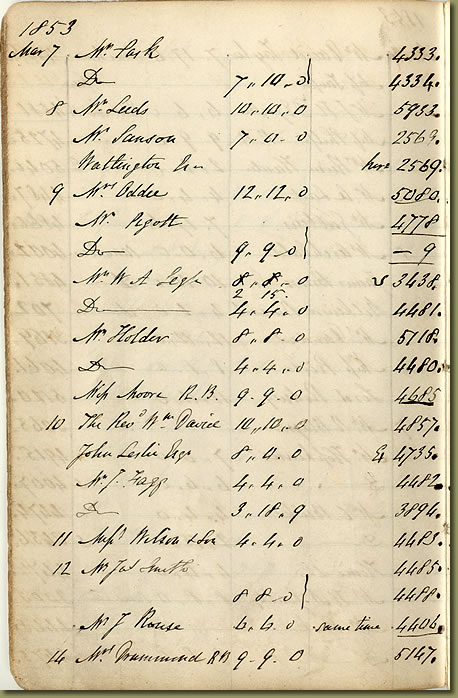 1853
Mar 7 Mr Park 4333.
Do 7,, 10,, 0 4334.
8 Mr Leeds 10,, 10,, 0 5933.
Mr Sanson 7,, 0,, 0 2563.
Wattington Esq here 2569.
9 Mrs Oddie 12,, 12,, 0 5080.
Mr Pigott 4778
Do 9,, 9,, 0 – 9
Mr W A Legh 8,, 8,, 0 3438.
2 15
Do 4,, 4,, 0 4481.
Mr Holder 8,, 8,, 0 5118.
Do 4,, 4,, 0 4480.
Miss Moore R.B. 9,, 9,, 0 4685
10 The Revd Wm Davice 10,, 10,, 0 4857.
John Leslie Esqr 8,, 0,, 0 4735.
Mr J. Fagg 4,, 4,, 0 4482.
Do 3,, 18,, 9 3894.
11 Messrs Wilson & Son 4,, 4,, 0 4483.
12 Mr Jas Smith 4485.
8 8 0 4488.
Mr J Rouse 6,, 6,, 0 same time 4406.
14 Mrs Drummond RB 9,, 9,, 0 5147.